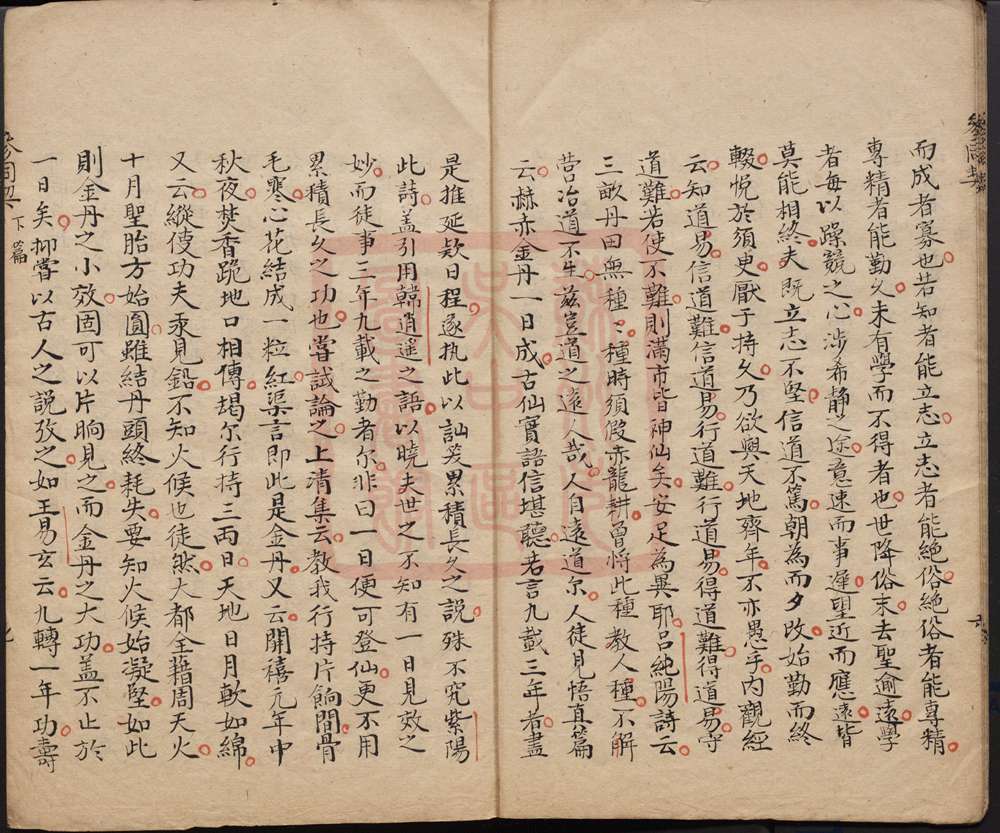 而成者寡也若知者能立志立志者能絶俗絶俗者能專精
專精者能勤久未有學而不得者也世降俗末去聖逾遠學
者每以躁競之心涉希静之途意速而事遲望近而應遠皆
莫能相終夫既立志不堅信道不篤朝為而夕改始勤而終
輟悦於須臾厭于持久乃欲與天地齊年不亦愚乎内觀經
云知道易信道難信道易行道難行道易得道難得道易守
道難若使不難則滿市皆神仙矣安足為異耶吕純陽詩云
三畝丹田無種〻種時須假赤龍耕曾將此種教人種不解
营治道不生兹豈道之遠人哉人自遠道尔人徒見悟真篇
云赫赤金丹一日成古仙實語信堪聽若言九載三年者盡
是推延欵日程遂执此以訕笑累積長久之説殊不究紫陽
此詩盖引用韓逍遥之語以曉夫世之不知有一日見效之
妙而徒事三年九載之勤者尔非曰一日便可登仙更不用
累積長久之功也嘗試論之上清集云教我行持片餉間骨
毛寒心花結成一粒紅渠言即此是金丹又云開禧元年中
秋夜焚香跪地口相傳竭尔行持三兩日天地日月軟如綿
又云縱使功夫汞見鉛不知火候也徒然大都全藉周天火
十月聖胎方始圓雖結丹頭終耗失要知火候始凝堅如此
則金丹之小效固可以片晌見之而金丹之大功盖不止於
一日矣抑嘗以古人之説攷之如王易玄云九轉一年功壽
參同契
下篇